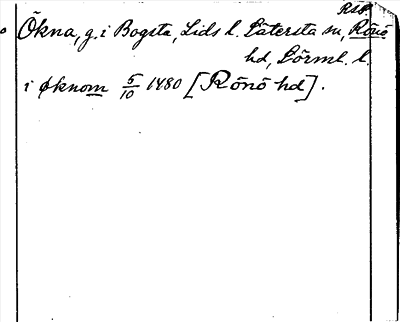 RSP.
Ökna, g. i Bogsta, Lids l. Sätersta sn, Rönö
hd, Sörml. l.
i øknom 5/10 1480 [Rönö hd].